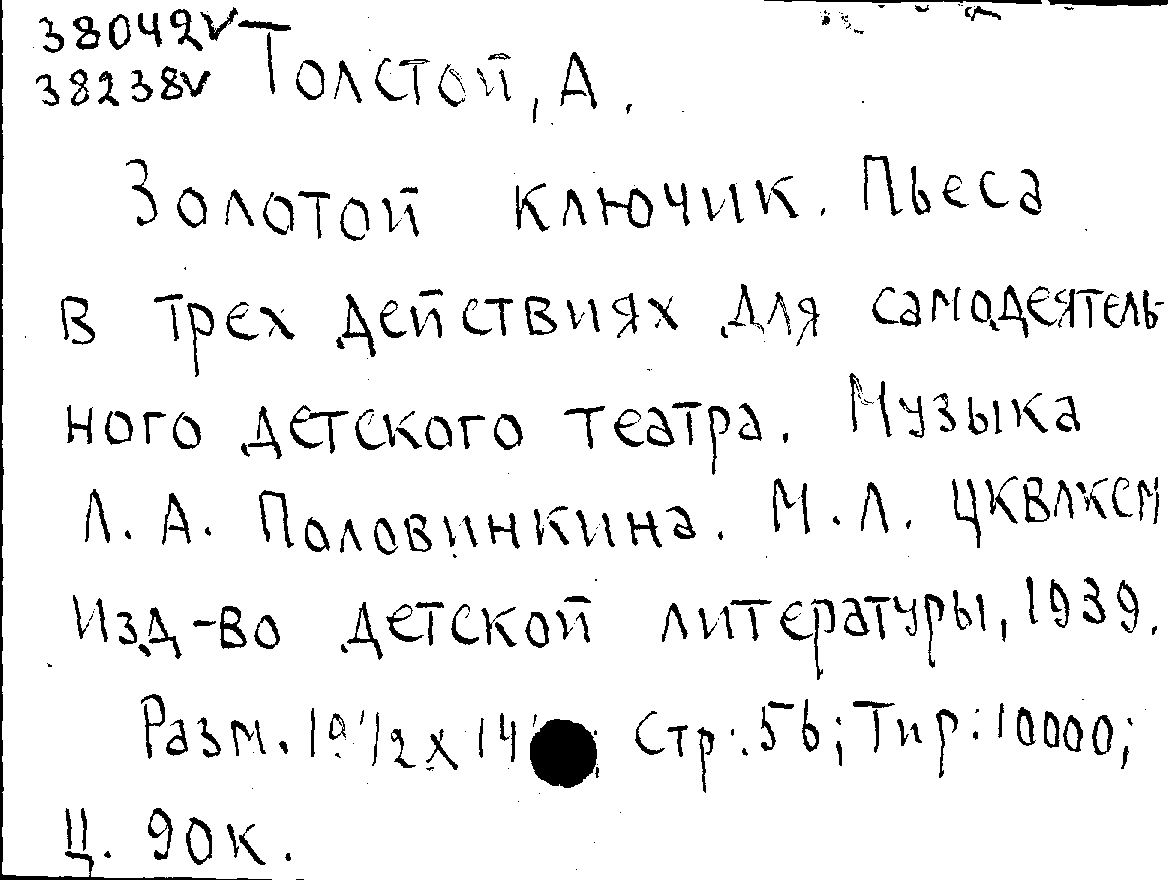 38042V
38238V Толстой, А.
Золотой ключик. Пьеса
в трех действиях для самодеятель-
ного детского театра. Музыка
Л. А. Половинкина. М. Л. ЦКВЛКСМ
Изд-во детской литературы, 1939.
Разм. 19 1/2 х 14 ; Стр.: 56; Тир: 10000;
Ц. 90к.